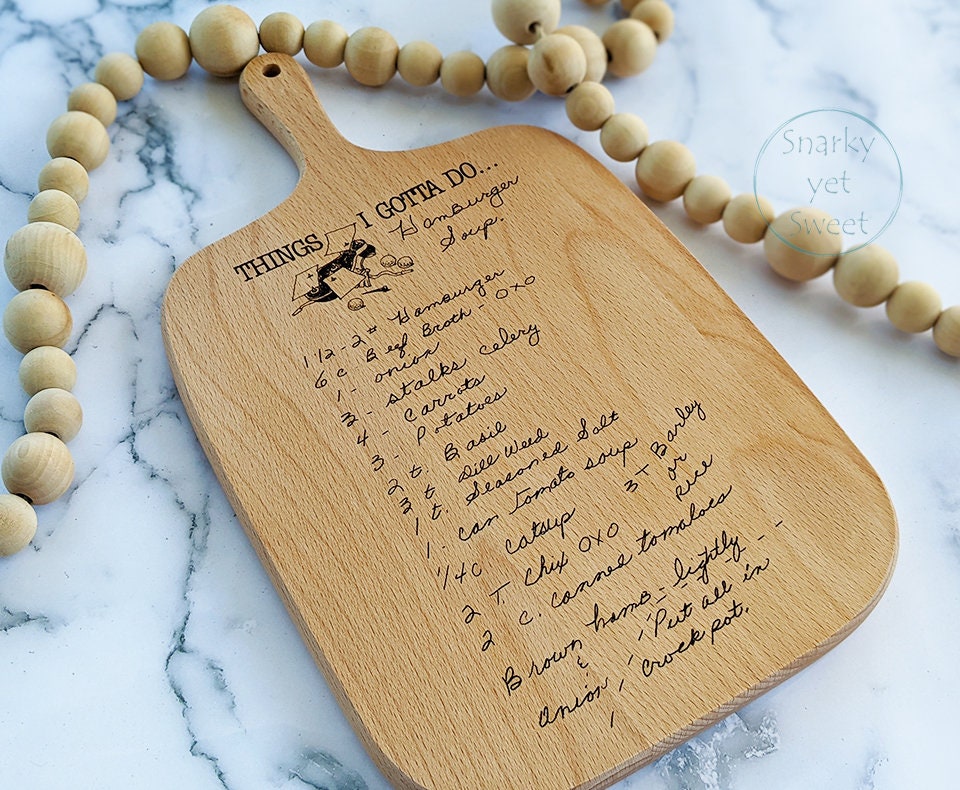 THINGS I GOTTA DO...
Hamburger
Soup.
1 1/2 - 2 # Hamburger
6 c Beef Broth - OXO
1 - onion
3 - stalks celery
4 - carrots
3 - Potatoes
2 t. Basil
3 t. Dill Weed
1 t. Seasoned Salt
1 - can tomato soup
1/4 C catsup 3 T Barley
or
Rice
2 T. chix OXO
2 c. canned tomatoes
Brown hamb - lightly -
& Put all in
onion crock pot.
Snarky
yet
Sweet